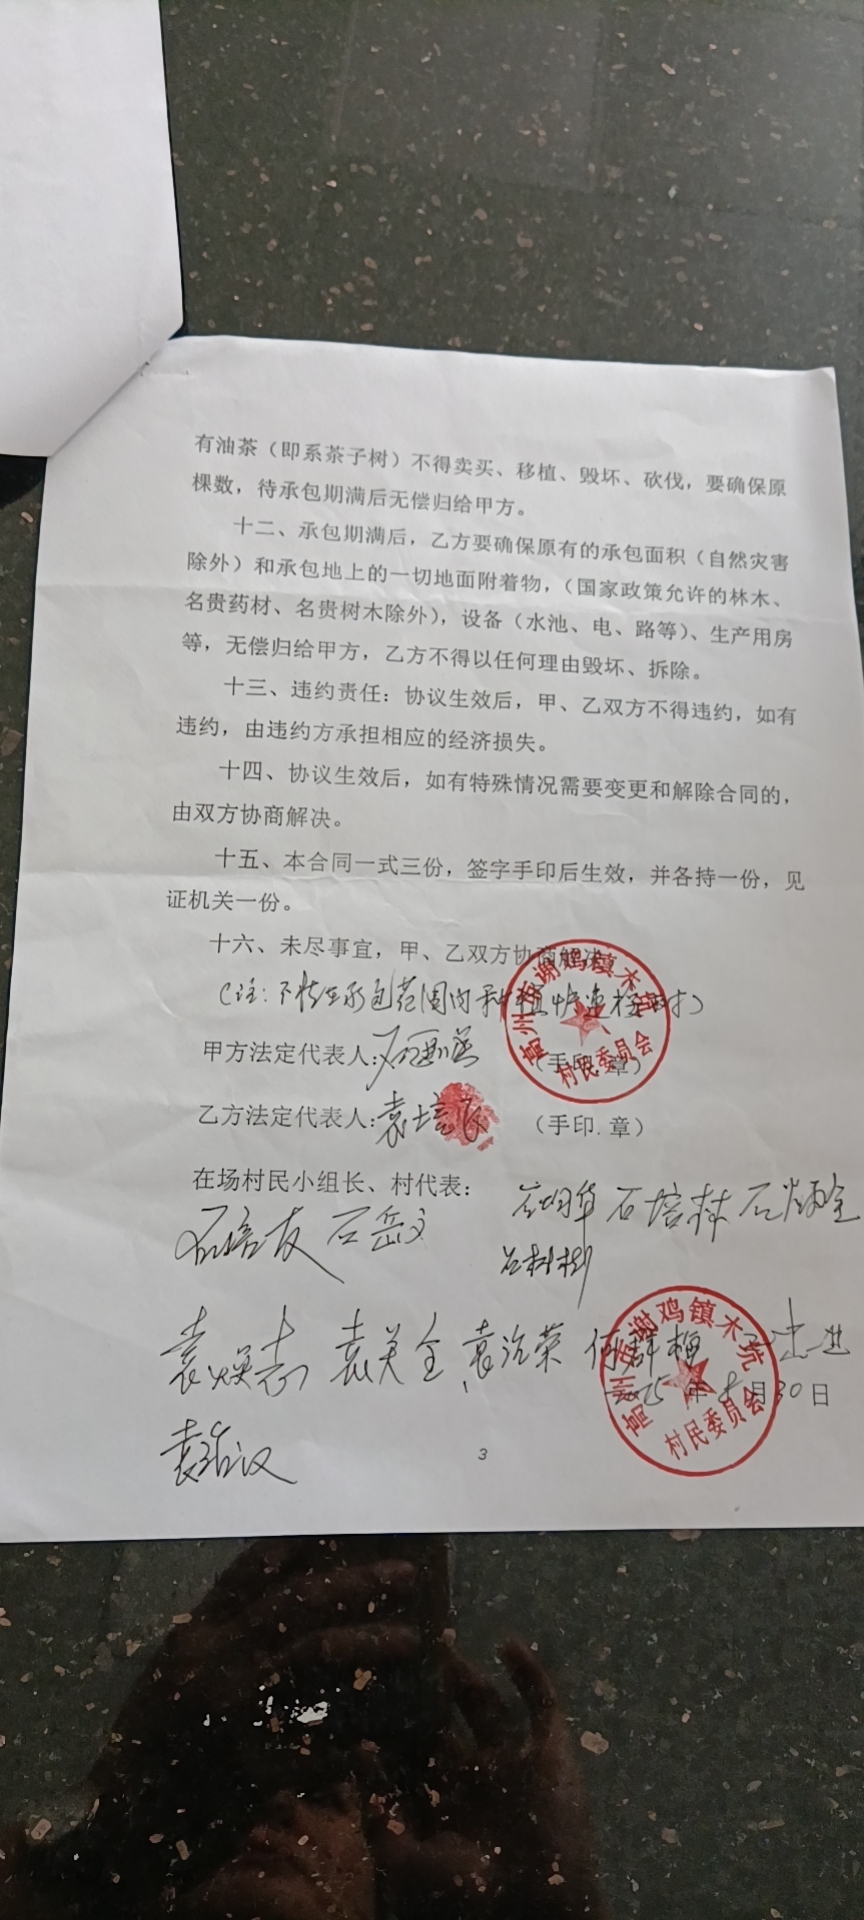 有油茶（即系茶子树）不得卖买、移植、毁坏、砍伐，要确保原
棵数，待承包期满后无偿归给甲方。
十二、承包期满后，乙方要确保原有的承包面积（自然灾害
除外）和承包地上的一切地面附着物，（国家政策允许的林木、
名贵药材、名贵树木除外），设备（水池、电、路等）、生产用房
等，无偿归给甲方，乙方不得以任何理由毁坏、拆除。
十三、违约责任：协议生效后，甲、乙双方不得违约，如有
违约，由违约方承担相应的经济损失。
十四、协议生效后，如有特殊情况需要变更和解除合同的，
由双方协商解决。
十五、本合同一式三份，签字手印后生效，并各持一份，见
证机关一份。
十六、未尽事宜，甲、乙双方协商解决。
（注：不能在承包范围内种植 速 树）
高州市谢鸡镇木坑
村民委员会
甲方法定代表人：（手印.章）
乙方法定代表人：袁培 （手印.章）
在场村民小组长、村代表：
石培友 石岳文 石培林 石炳全
袁焕志 袁美全 袁 荣 何群
高州市谢鸡镇木坑
村民委员会
年8月30日
袁 汉
3